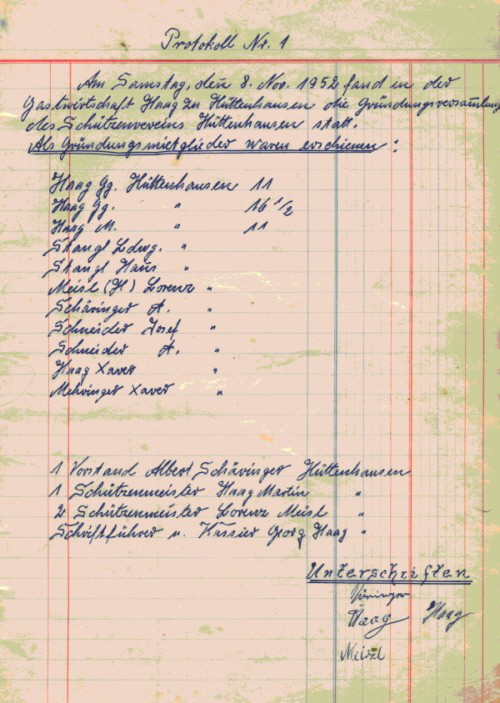 Protokoll Nr. 1
Am Samstag, den 8. Nov. 1952 fand in der
Gastwirtschaft Haag zu Hüttenhausen die Gründungsversammlung
des Schützenvereins Hüttenhausen statt.
Als Gründungsmietglieder waren erschienen:
Haag Gg. Hüttenhausen 11
Haag Gg. " 16 1/2
Haag M. " 11
Stangl Ldwg. "
Stangl Hans "
Meisl (H) Lorenz "
Schäringer A. "
Schneider Josef "
Schneider A. "
Haag Xaver "
Mehringer Xaver "
1 Vorstand Albert Schäringer Hüttenhausen
1 Schützenmeister Haag Martin "
2 Schützenmeister Lorenz Meisl "
Schriftführer u. Kassier Georg Haag "
Unterschriften
Haag Haag
Meisl